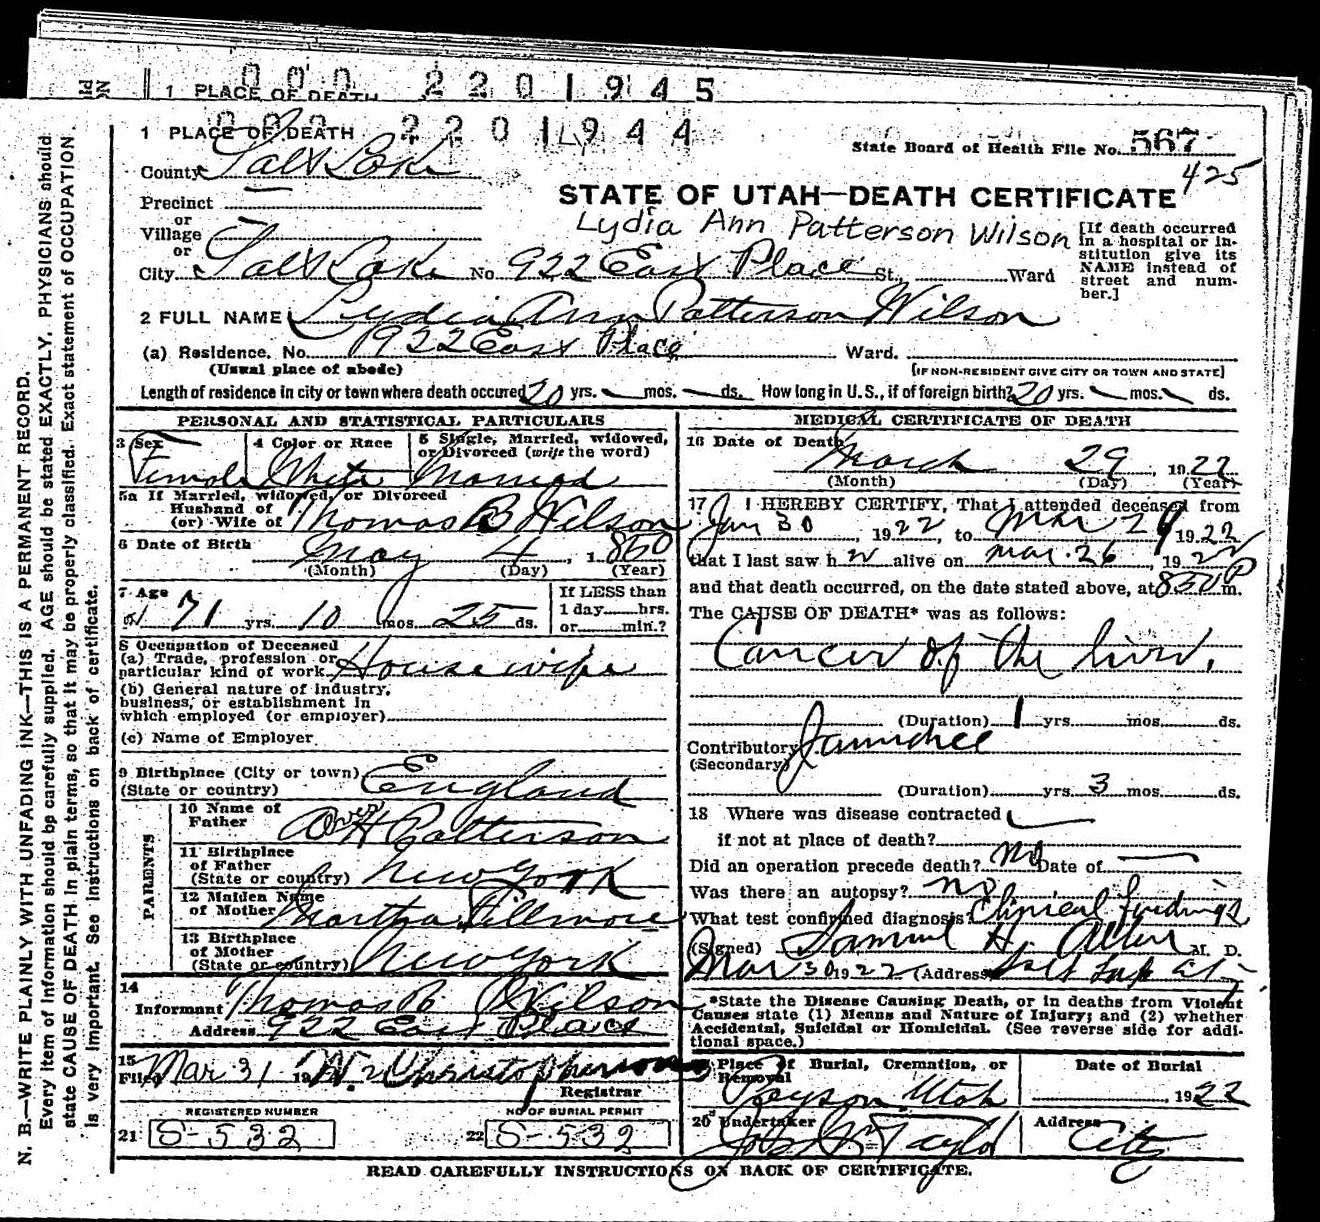 000 2201945
1 PLACE OF DEATH
000 2201944
1 PLACE OF DEATH
State Board of Health File No. 567
425
County Salt Lake
STATE OF UTAH—DEATH CERTIFICATE
Precinct
or
Village
or
Lydia Ann Patterson Wilson
[If death occurred in a hospital or in-
stitution give its
NAME instead of
street and num-
ber.]
City Salt Lake No. 922 East Place St. Ward
2 FULL NAME Lydia Ann Patterson Wilson
(a) Residence. No. 922 East Place Ward.
(Usual place of abode) [IF NON-RESIDENT GIVE CITY OR TOWN AND STATE]
Length of residence in city or town where death occured 20 yrs. — mos. — ds. How long in U.S., if of foreign birth? 20 yrs. — mos. — ds.
PERSONAL AND STATISTICAL PARTICULARS
3 Sex 4 Color or Race 5 Single, Married, widowed,
or Divorced (write the word)
Female White Married
5a If Married, widowed, or Divorced
Husband of
(or) Wife of Thomas B Wilson
6 Date of Birth May 4, 1850
(Month) (Day) (Year)
7 Age 71 yrs. 10 mos. 25 ds.
If LESS than
1 day hrs.
or min.?
8 Occupation of Deceased
(a) Trade, profession or
particular kind of work Housewife
(b) General nature of Industry,
business, or establishment in
which employed (or employer)
(c) Name of Employer
9 Birthplace (City or town)
(State or country) England
PARENTS
10 Name of
Father H Patterson
11 Birthplace
of Father
(State or country) New York
12 Maiden Name
of Mother Martha Fillmore
13 Birthplace
of Mother
(State or country) New York
14
Informant Thomas B. Wilson
Address 922 East Place
15
Filed Mar 31 1922 Christopherson
Registrar
REGISTERED NUMBER NO OF BURIAL PERMIT
21 S-532 22 S-532
MEDICAL CERTIFICATE OF DEATH
16 Date of Death March 29, 1922
(Month) (Day) (Year)
17 I HEREBY CERTIFY, That I attended deceased from
Jan 30, 1922, to Mar 29 1922
that I last saw her alive on Mar. 26, 1922
and that death occurred, on the date stated above, at 850 P m.
The CAUSE OF DEATH* was as follows:
Cancer of the liver.
(Duration) 1 yrs. mos. ds.
Contributory Jaundice
(Secondary)
(Duration) yrs. 3 mos. ds.
18 Where was disease contracted
if not at place of death?
Did an operation precede death? No Date of —
Was there an autopsy? no
What test confirmed diagnosis? Clinical findings
(Signed) Samuel H. Allen M. D.
Mar 30 1922 (Address Salt Lake City
*State the Disease Causing Death, or in deaths from Violent
Causes state (1) Means and Nature of Injury; and (2) whether
Accidental, Suicidal or Homicidal. (See reverse side for addi-
tional space.)
Place of Burial, Cremation, or
Removal
Payson Utah
Date of Burial
1922
20 Undertaker
Taylor
Address City
READ CAREFULLY INSTRUCTIONS ON BACK OF CERTIFICATE.
N. B.—WRITE PLAINLY WITH UNFADING INK—THIS IS A PERMANENT RECORD.
Every item of Information should be carefully supplied. AGE should be stated EXACTLY. PHYSICIANS should
state CAUSE OF DEATH in plain terms, so that it may be properly classified. Exact statement of OCCUPATION
is very important. See instructions on back of certificate.